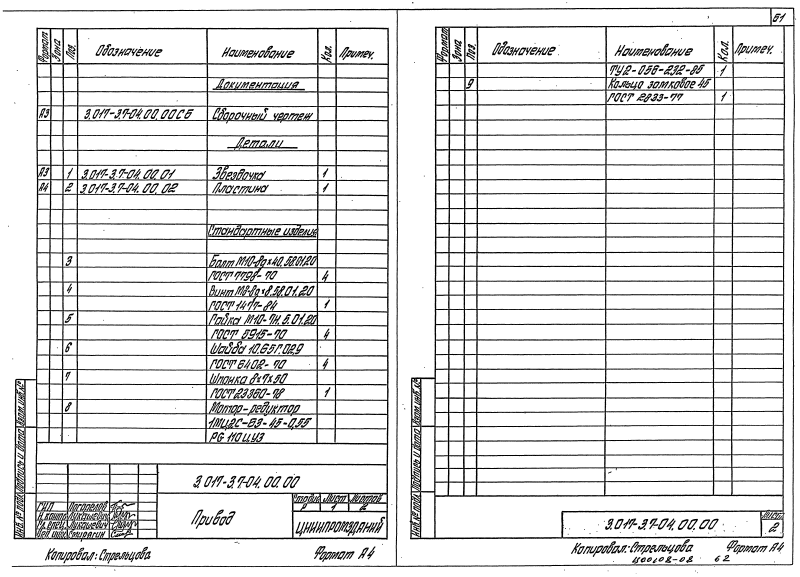 Формат Зона Поз. Обозначение Наименование Кол. Примеч.
Документация
А3 3.017-3.7-04.00.00СБ Сборочный чертеж
Детали
А3 1 3.017-3.7-04.00.01 Звездочка 1
А4 2 3.017-3.7-04.00.02 Пластина 1
Стандартные изделия
3 Болт М10-8gх40.58.01.20
ГОСТ 7798-70 4
4 Винт М8-8gх8.58.01.20
ГОСТ 1477-84 1
5 Гайка М10-7Н.5.01.20
ГОСТ 5915-70 4
6 Шайба 10.65Г.02.9
ГОСТ 6402-70 4
7 Шпонка 8х7х50
ГОСТ 23360-78 1
8 Мотор-редуктор
1МЦ2С-63-45-0,55
РG 110 ЦУ3
Инв. № подл. Подпись и дата Взам. инв. №
3.017-3.7-04.00.00
ГИП
Н. контр. Лукашевич
Гл. спец. Лукашевич
Привод
Стадия Лист Листов
Р 1 2
ЦНИИПРОМЗДАНИЙ
Копировал: Стрельцова Формат А4
61
Формат Зона Поз. Обозначение Наименование Кол. Примеч.
ТУ2-056-232-85 1
9 Кольцо замковое 45
ГОСТ 2833-77 1
Инв. № подл. Подпись и дата Взам. инв. №
3.017-3.7-04.00.00
Лист
2
Копировал: Стрельцова Формат А4
Ц00108-08 62